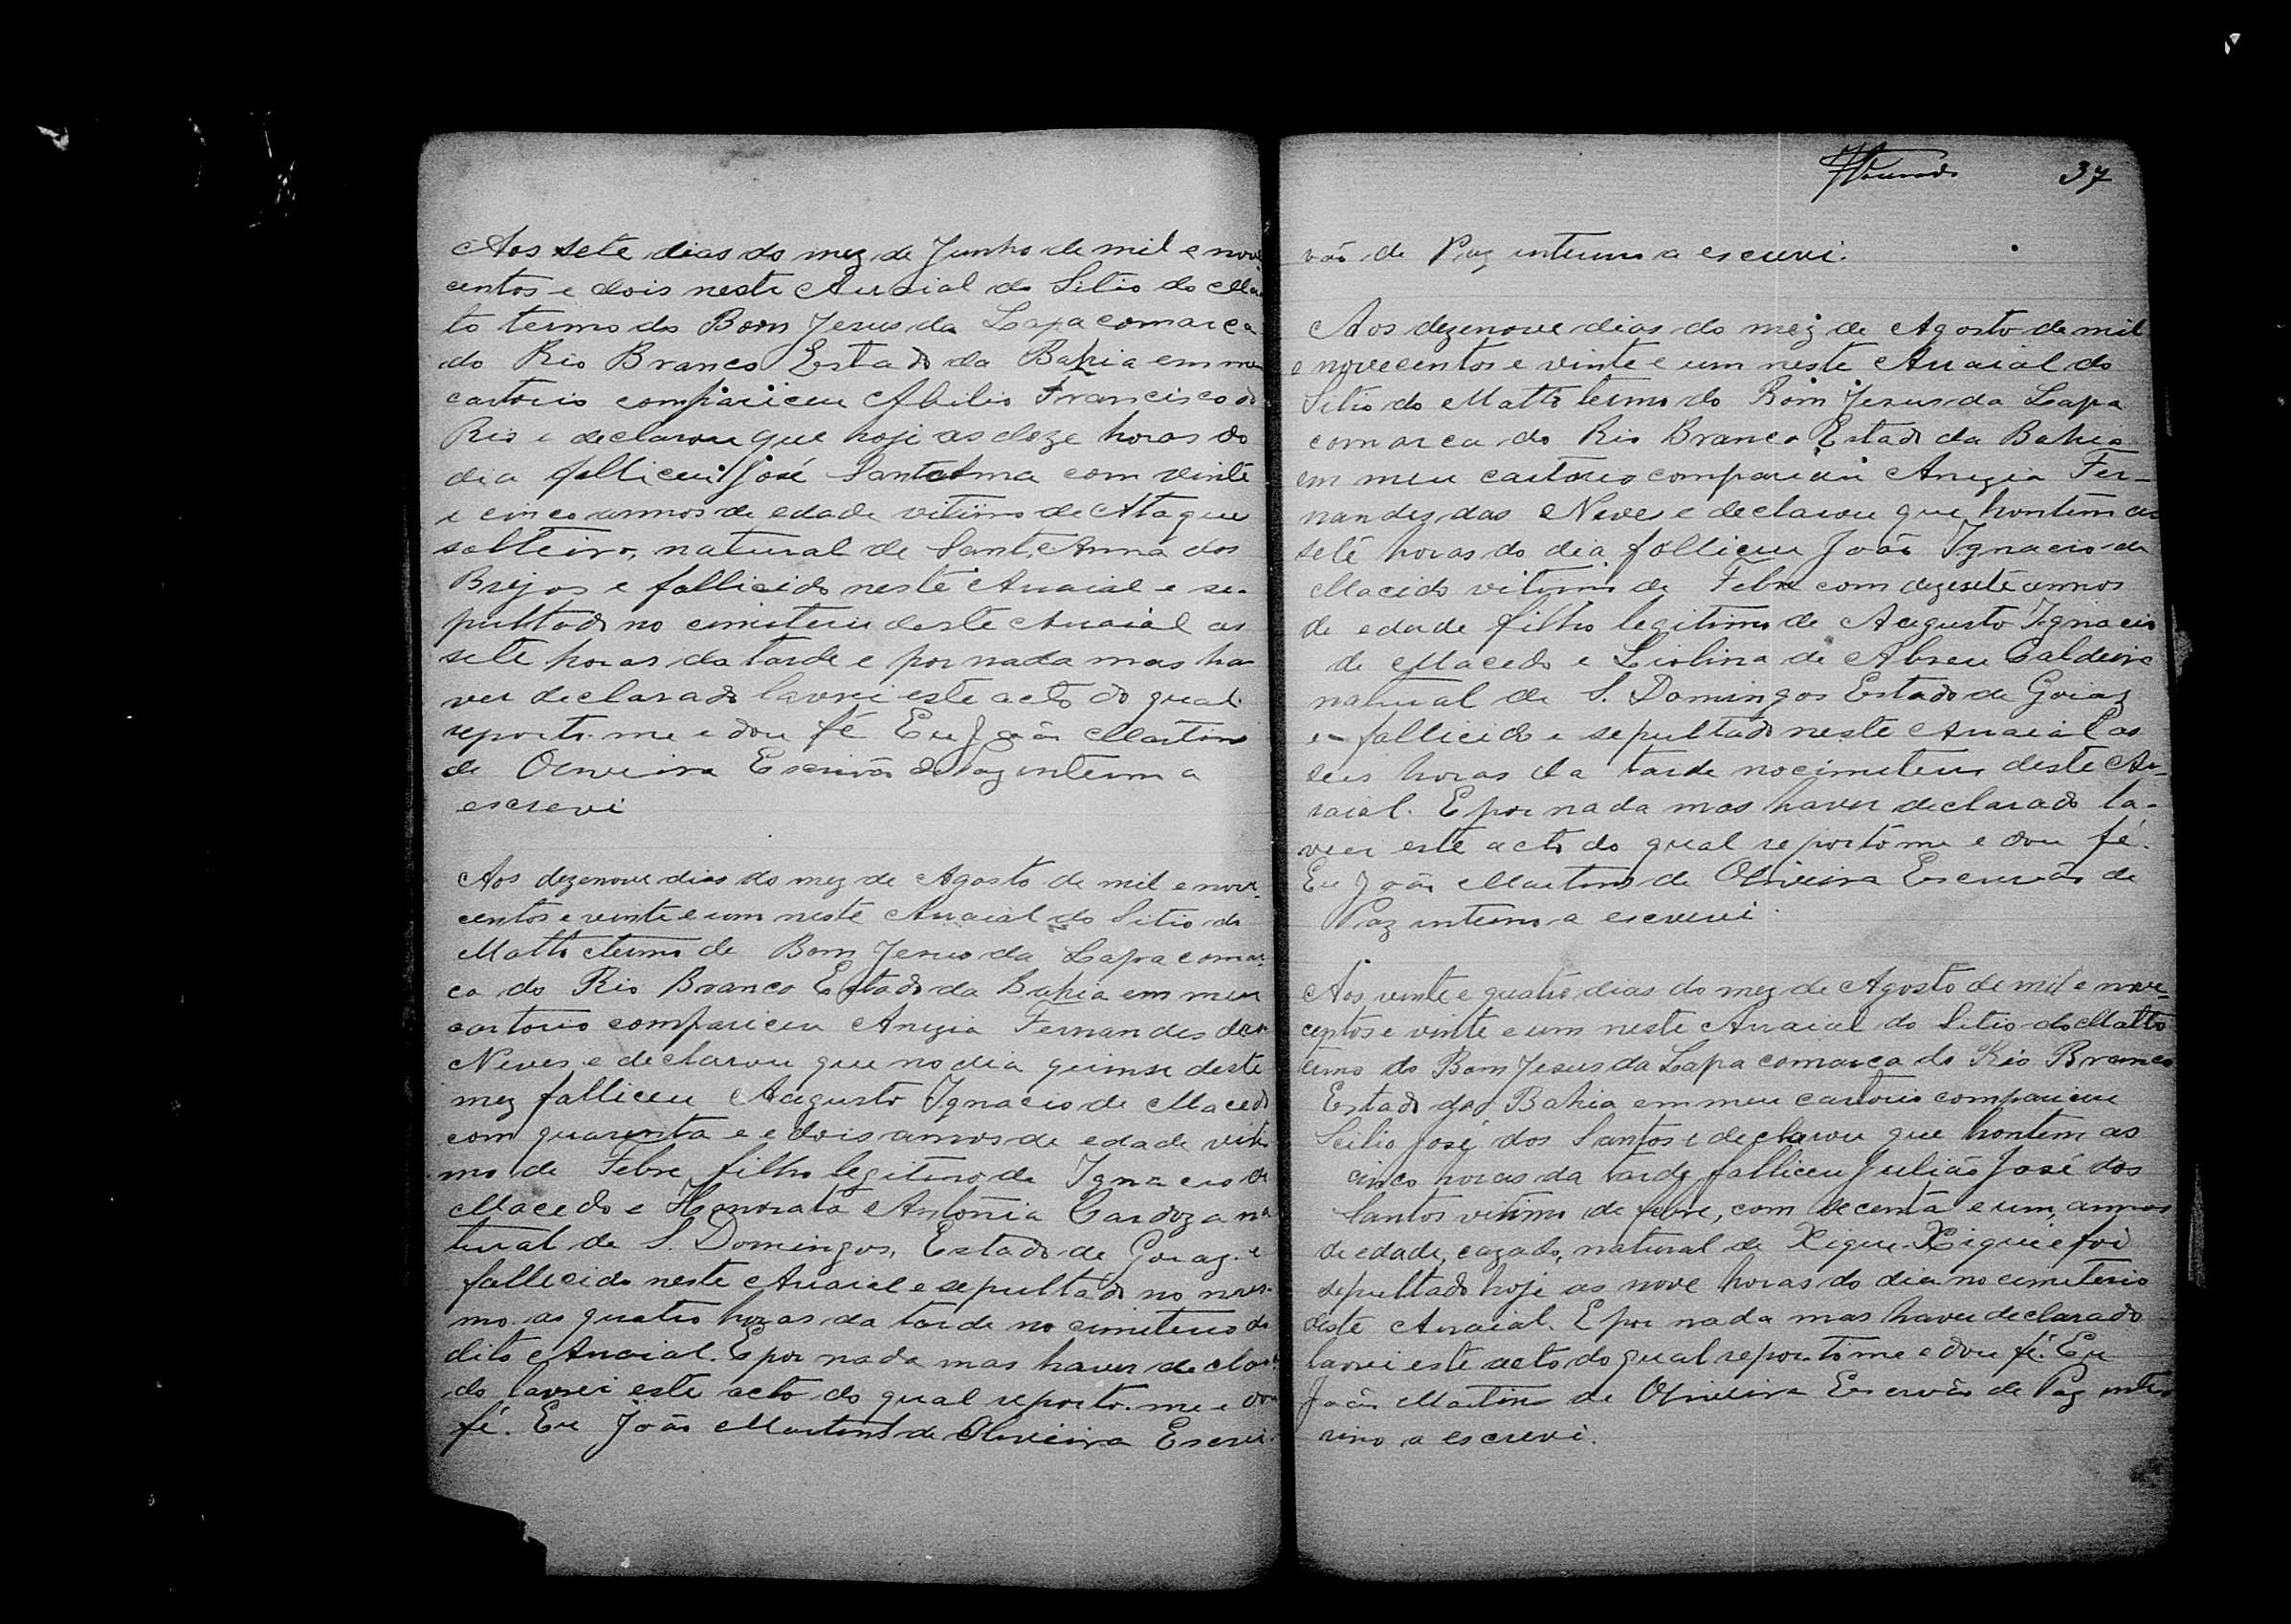 Aos sete dias do mez de Junho de mil e nove
centos e dois neste Arraial do Sitio do Ma
to termo do Bom Jesus da Lapa comarca
do Rio Branco Estado da Bahia em meu
cartorio compariceu Abilio Francisco do
Rio e declarou que hoje as doze horas do
dia falliceu José Santanna com vinte
e cinco annos de edade vitimo de Ataque
solteiro, natural de Sant'Anna dos
Brejos e fallicido neste Arraial e se-
pultado no cimiterio deste Arraial as
sete horas da tarde e por nada mas ha
ver declarado lavrei este acto do qual
reporto-me e dou fé Eu João Martins
de Oliveira Escrivão de Paz interino a
escrevi
Aos dezenove dias do mez de Agosto de mil e nove-
centos e vinte e um neste Arraial do Sitio do
Matto termo de Bom Jesus da Lapa comar-
ca do Rio Branco Estado da Bahia em meu
cartorio compariceu Anizia Fernandes das
Neves e declarou que no dia quinse deste
mez falliceu Augusto Ignacio de Macedo
com quarenta e e dois annos de edade viti
mo de Febre filho legitimo de Ignacio de
Macedo e Honorata Antonia Cardoza na
tural de S. Domingos, Estado de Goiaz. e
fallicido neste Arraial e sepultado no mes-
mo as quatro horas da tarde no cimiterio do
dito Arraial. E por nada mas haver declara
do lavrei este acto do qual reporto-me e dou
fé. Eu João Martins de Oliveira Escri-
37
vão de Paz interino a escrevi.
Aos dezenove dias do mez de Agosto de mil
e novecentos e vinte e um neste Arraial do
Sitio do Matto termo do Bom Jesus da Lapa
comarca do Rio Branco Estado da Bahia
em meu cartorio compariceu Anizia Fer-
nandes das Neves e declarou que hontem as
sete horas do dia falliceu João Ignacio de
Macido vitimo de Febre com dezesete annos
de edade filho legitimo de Augusto Ignacio
de Macedo e Liolina de Abreu Caldeira
natural de S. Domingos Estado de Goiaz
e fallicido e sepultado neste Arraial as
seis horas da tarde no cimiterio deste Ar-
raial. E por nada mas haver declarado la-
vrei este acto do qual reporto me e dou fé.
Eu João Martins de Oliveira Escrivão de
Paz interino a escrevi.
Aos vinte e quatro dias do mez de Agosto de mil e nove-
centos e vinte e um neste Arraial do Sitio do Matto
termo do Bom Jesus da Lapa comarca do Rio Branco
Estado da Bahia em meu cartorio compariceu
José dos Santos e declarou que hontem as
cinco horas da tarde falliceu Julião José dos
Santos vitimo de febre, com secenta e um, annos
de edade, cazado, natural de Xique-Xique e foi
sepultado hoje as nove horas do dia no cimiterio
deste Arraial. E por nada mas haver declarado
lavrei este acto do qual reporto me e dou fé. Eu
João Martins de Oliveira Escrivão de Paz inte
rino a escrevi.